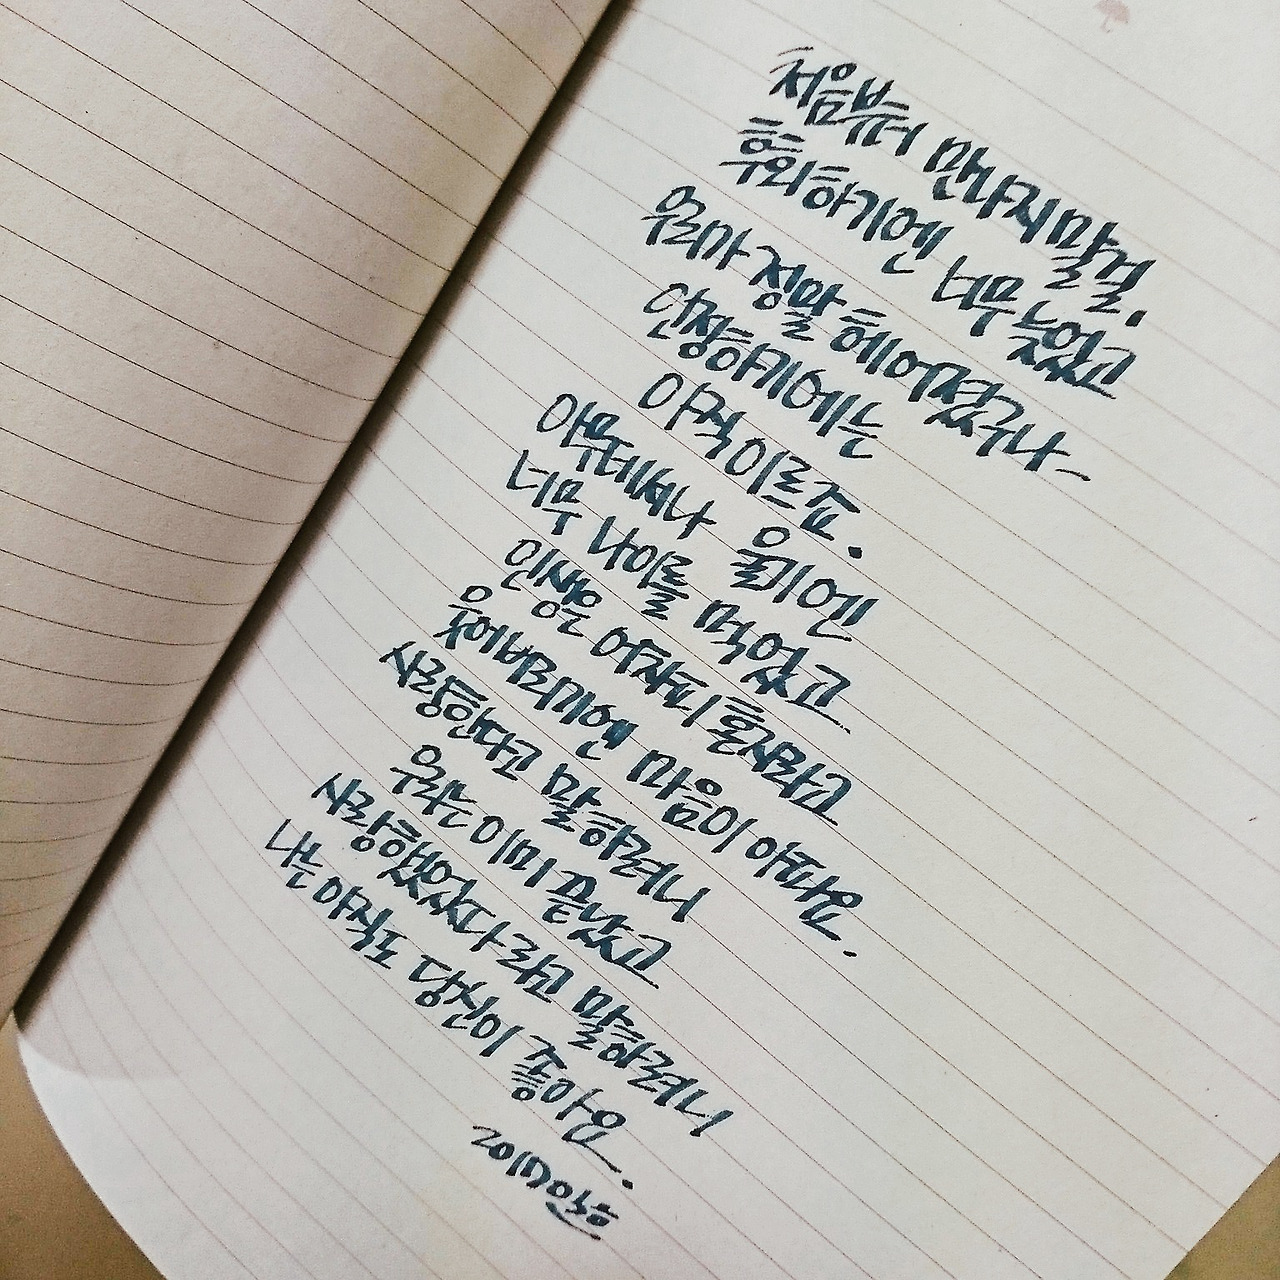 처음부터 만나지말걸.
후회하기엔 너무 늦었고
우리가 정말 헤어졌구나-
인정하기에는
아직 이르죠.
아무데서나 울기엔
너무 나이를 먹었고
인생은 어차피 혼자라고
웃어버리기엔 마음이 아파요.
사랑한다고 말하려니
우리는 이미 끝났고
사랑했었다라고 말하려니
나는 아직도 당신이 좋아요.